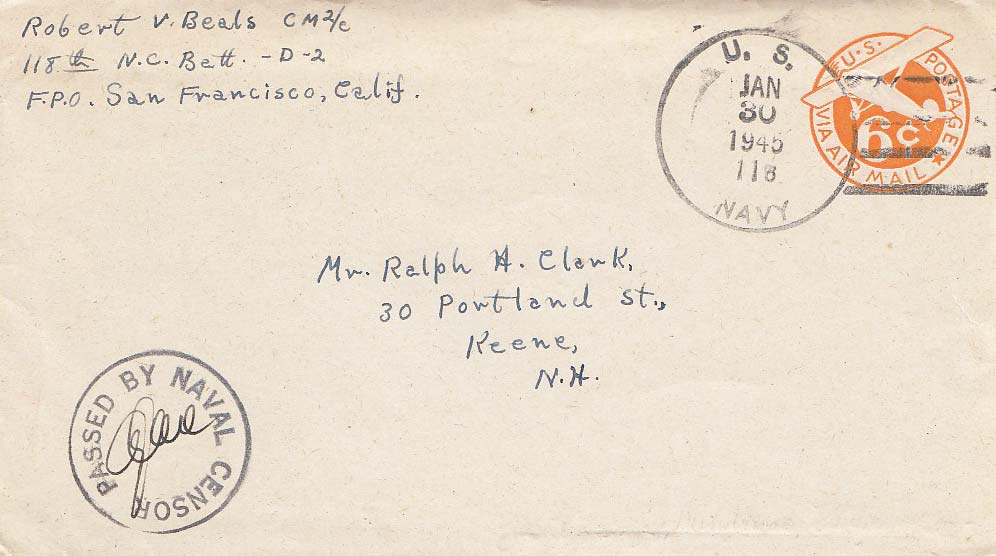 Robert V. Beals CM2/c
118th N.C. Batt. -D-2
F.P.O. San Francisco, Calif.
U. S.
JAN
30
1945
118
NAVY
U.S. POSTAGE
6c
VIA AIR MAIL
Mr. Ralph H. Clark,
30 Portland St.,
Keene,
N.H.
PASSED BY NAVAL CENSOR